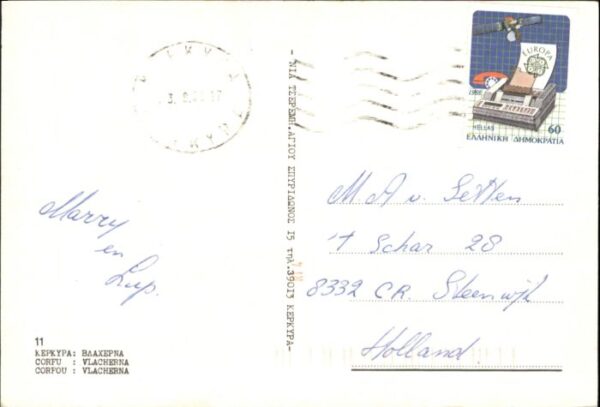 Marry
en
Lup.
11
ΚΕΡΚΥΡΑ: ΒΛΑΧΕΡΝΑ
CORFU : VLACHERNA
CORFOU : VLACHERNA
- ΝΙΑ ΤΣΕΡΕΜΗ.ΑΓΙΟΥ ΣΠΥΡΙΔΩΝΟΣ 15 τηλ.39013 ΚΕΡΚΥΡΑ-
EUROPA
1988
HELLAS 60
ΕΛΛΗΝΙΚΗ ΔΗΜΟΚΡΑΤΙΑ
M A v. Setten
't Schar 28
8332 CR. Steenwijk
Holland